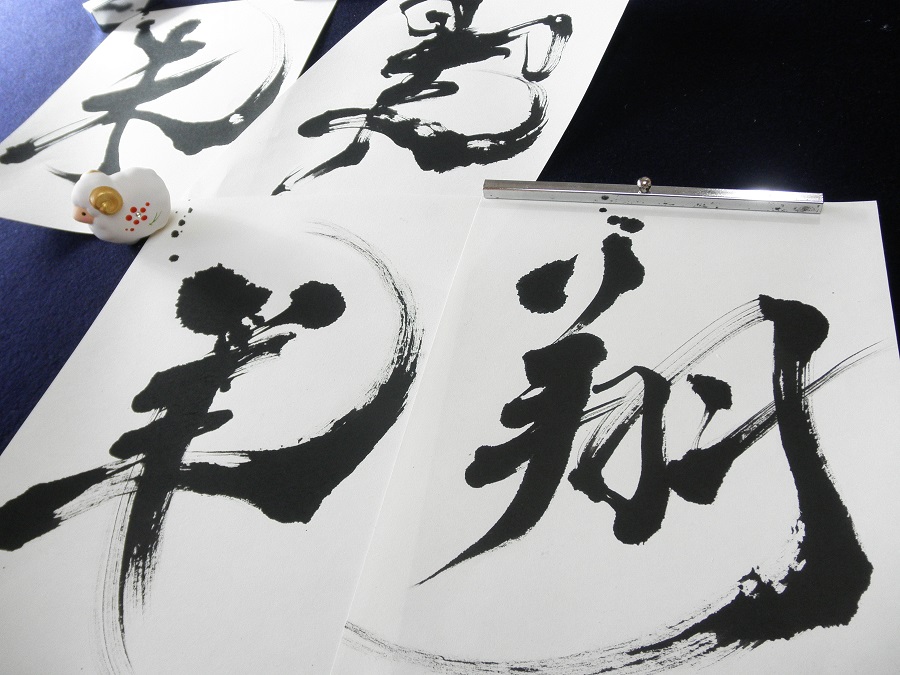 未
羊 翔